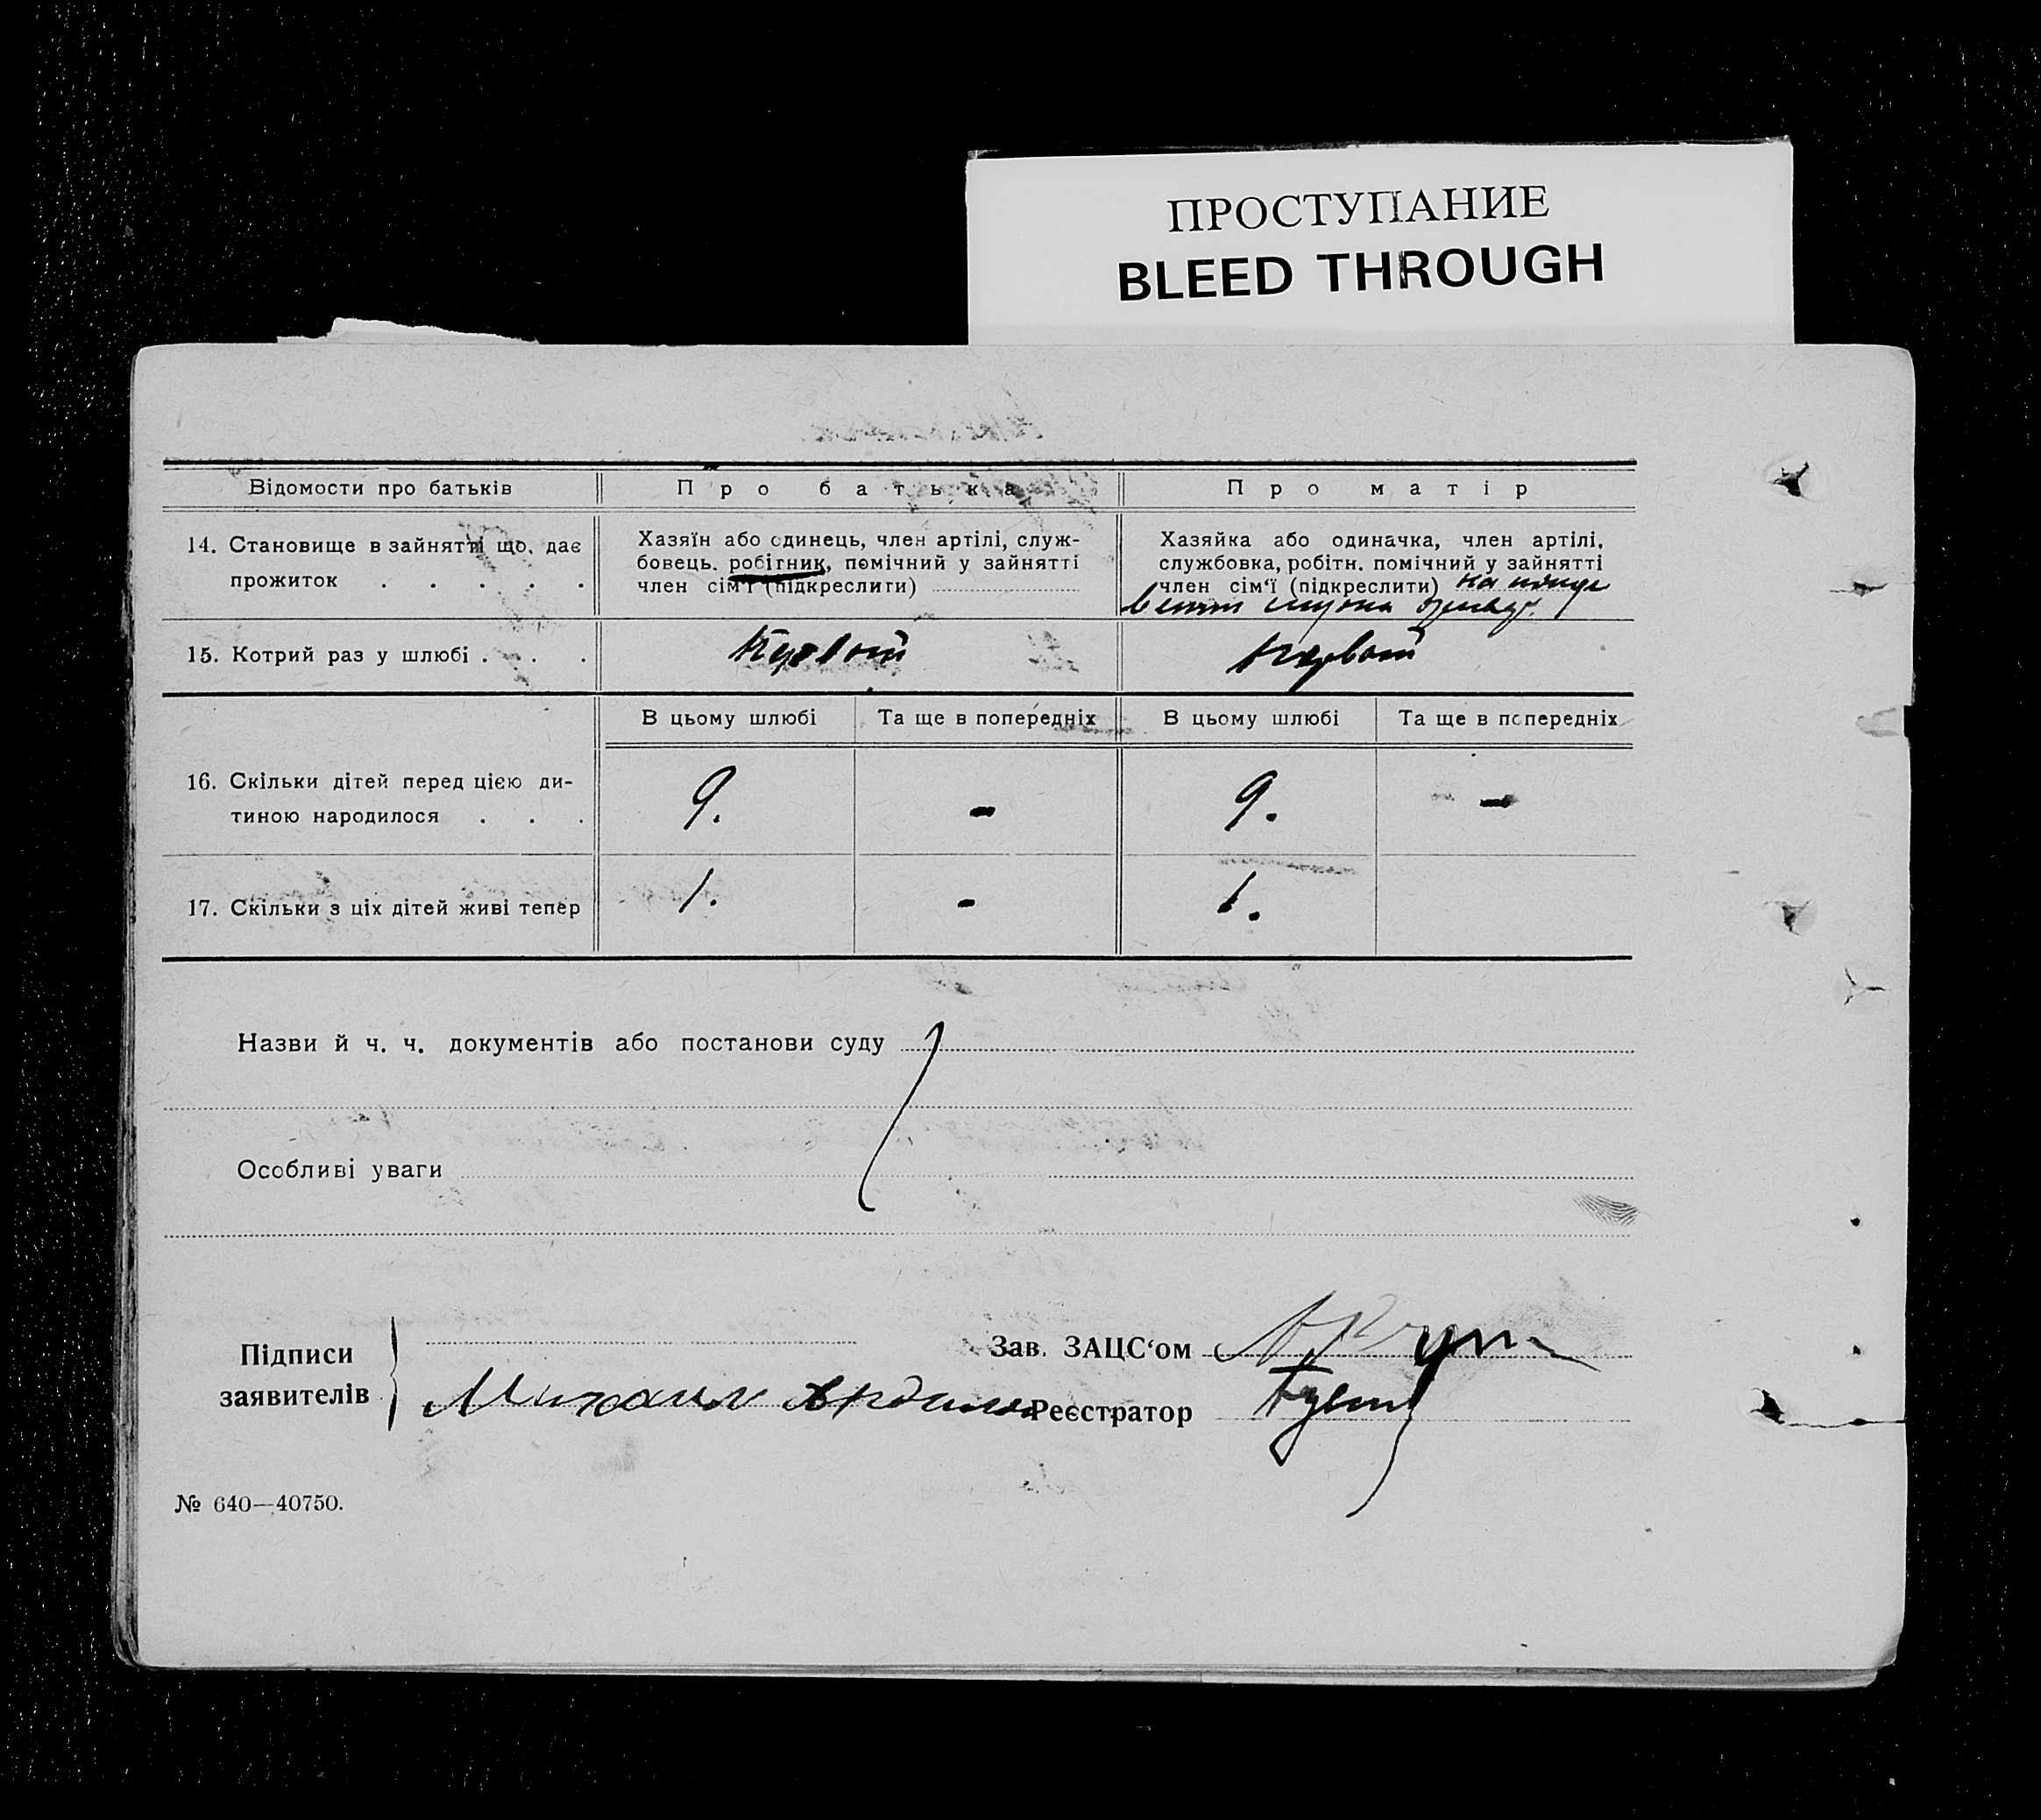 ПРОСТУПАНИЕ
BLEED THROUGH
Відомости про батьків
Про батька
Про матір
14. Становище в зайнятті що, дає
прожиток . . . . .
Хазяїн або одинець, член артілі, служ-
бовець, робітник, помічний у зайнятті
член сім'ї (підкреслити)
Хазяйка або одиначка, член артілі,
службовка, робітн. помічний у зайнятті
член сім'ї (підкреслити) на
15. Котрий раз у шлюбі . . .
Первый
Первый
В цьому шлюбі
Та ще в попередніх
В цьому шлюбі
Та ще в попередніх
16. Скільки дітей перед цією ди-
тиною народилося . . .
9.
-
9.
-
17. Скільки з ціх дітей живі тепер
1.
-
1.
Назви й ч. ч. документів або постанови суду
Особливі уваги
Підписи
заявителів
Михаил
Зав. ЗАЦС'ом
Реєстратор
№ 640—40750.